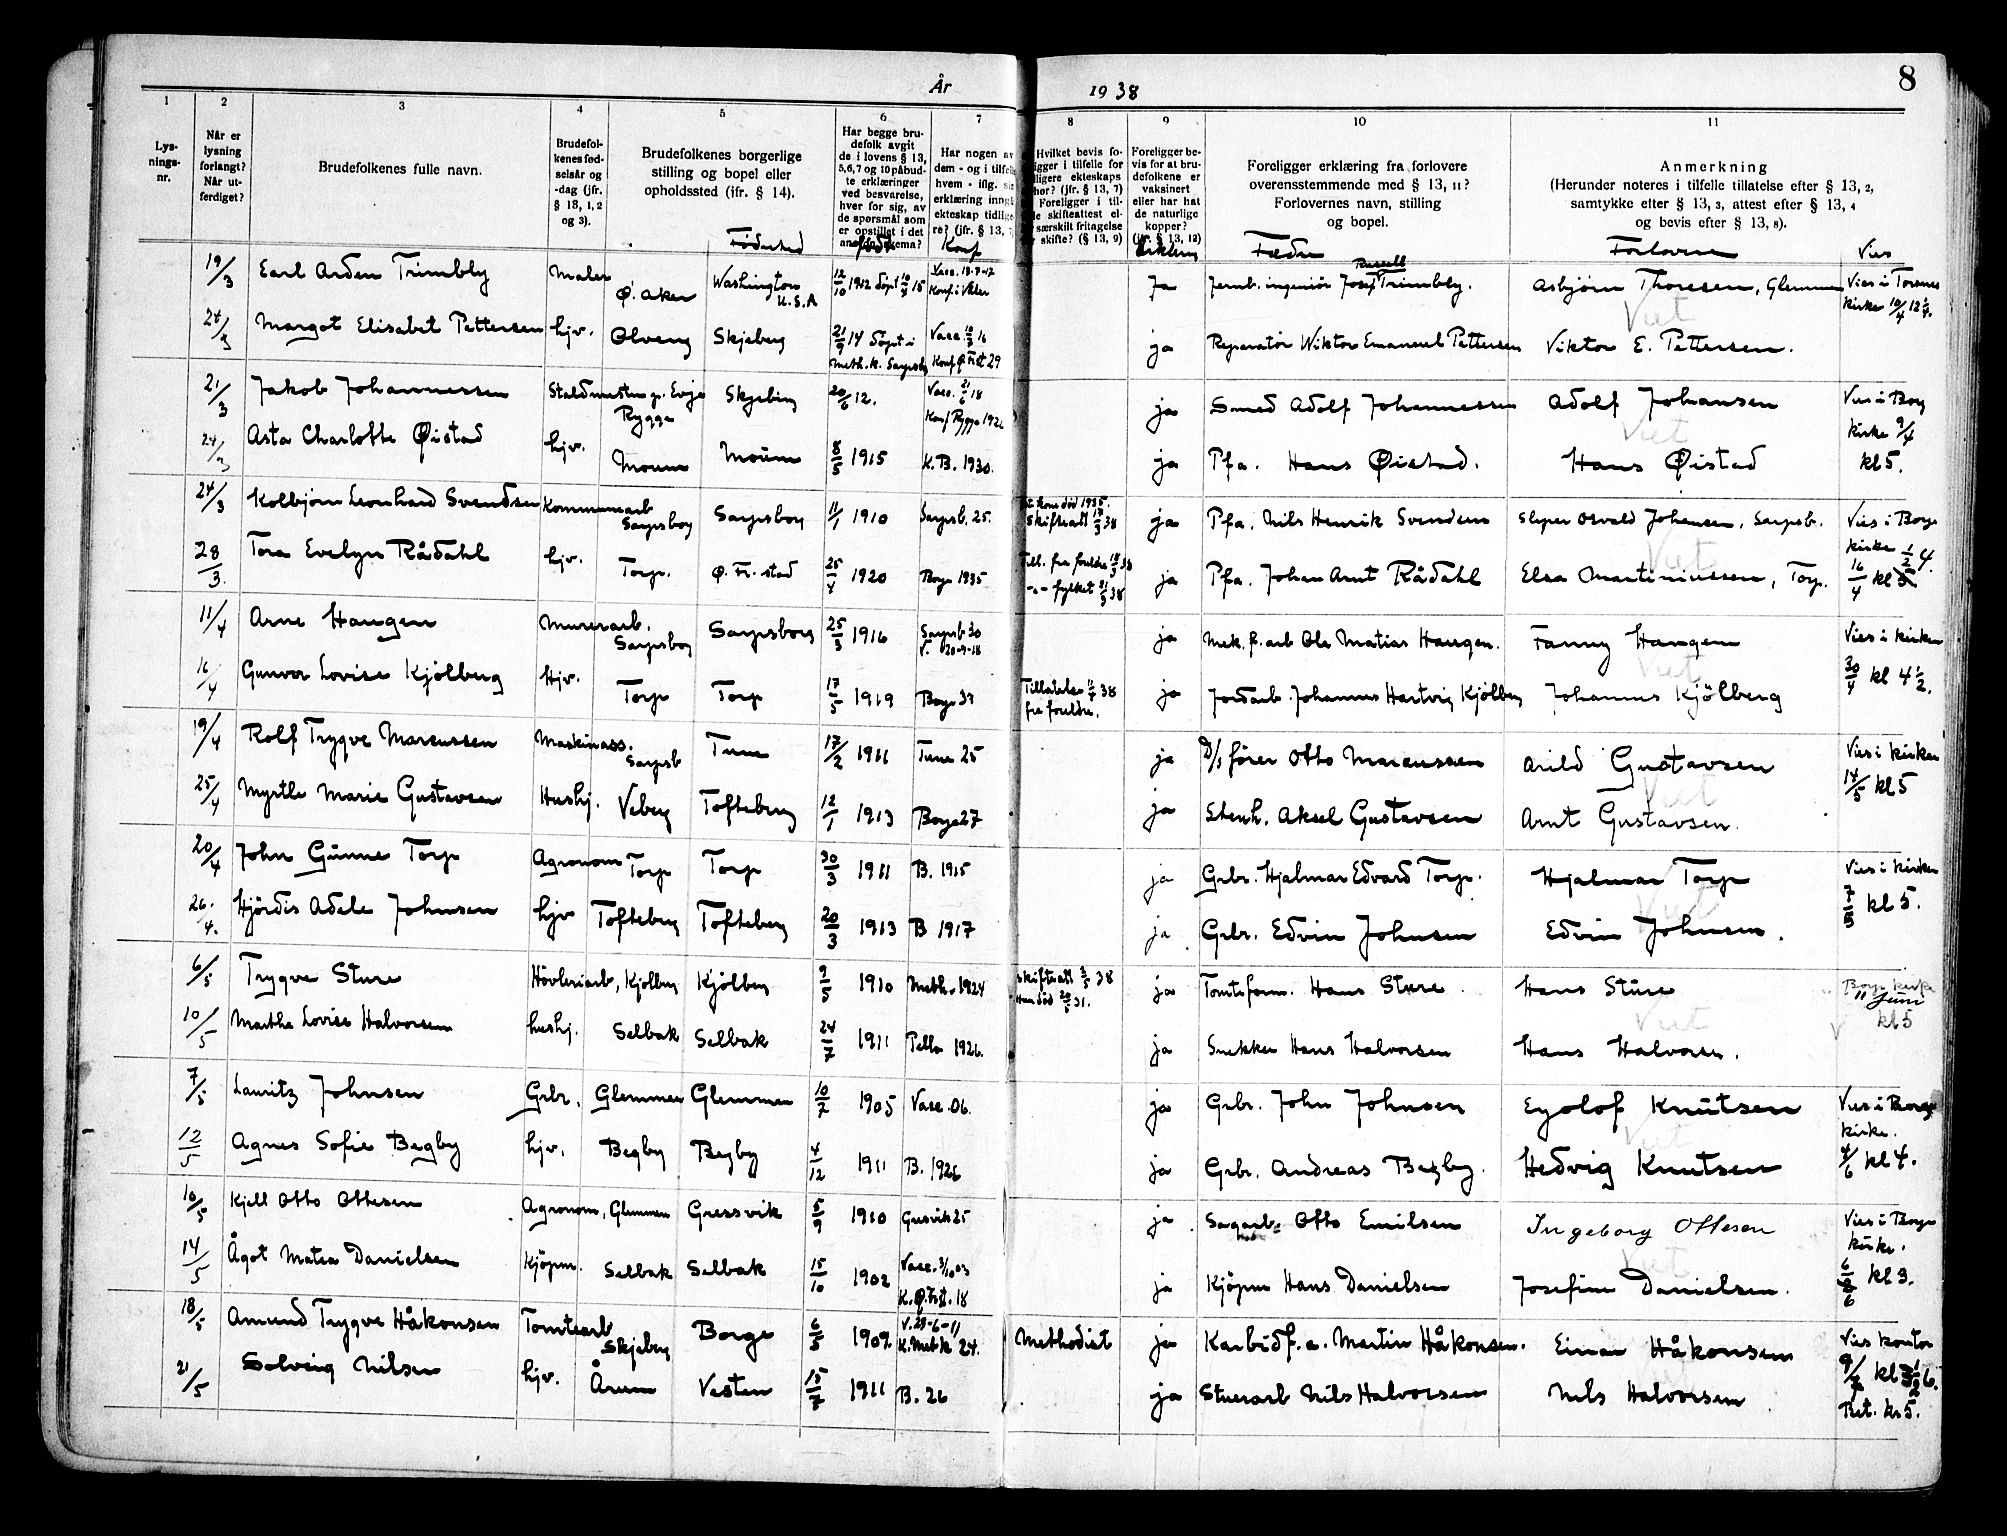 År 1938
8
1 2 3 4 5 6 7 8 9 10 11
Lys-
nings-
nr.
Når er
lysning
forlangt?
Når ut-
ferdiget?
Brudefolkenes fulle navn.
Brudefol-
kenes fød-
selsår og
-dag (jfr.
§ 13, 1, 2
og 3).
Brudefolkenes borgerlige
stilling og bopel eller
opholdssted (ifr. § 14).
Fødested
Har begge bru-
defolk avgit
de i lovens § 13,
5, 6, 7 og 10 påbud-
te erklæringer
ved besvarelse,
hver for sig, av
de spørsmål som
er opstillet i det
født
Har nogen av
dem - og i tilfelle
hvem - iflg. sin
erklæring inngått
ekteskap tidlige-
re? (jfr. § 13, 7)
Konf
Hvilket bevis fo-
ligger i tilfelle for
ligere ekteskaps
hør? (jfr. § 13, 7)
Foreligger i til-
le skifteattest el-
særskilt fritagelse
skifte? (§ 13, 9)
Foreligger be-
vis for at bru-
defolkene er
vaksinert
eller har hat
de naturlige
kopper?
(jfr. § 13, 12)
Foreligger erklæring fra forlovere
overensstemmende med § 13, 11?
Forlovernes navn, stilling
og bopel.
Fædre
Anmerkning
(Herunder noteres i tilfelle tillatelse efter § 13, 2,
samtykke efter § 13, 3, attest efter § 13, 4
og bevis efter § 13, 8).
Forlovere
Vies
19/3 Earl Arden Trimbly Maler Ø. Aker Washington U.S.A 12/10 1912 Vacc. 13-9-17 Ja Jernb. ingeniør Josef Russell Trimbly. Asbjørn Thoresen, Glemmen Vies i Torsnes kirke 10/4 12 1/4.
24/3 Margot Elisabet Pettersen hjv. Ølveng Skjeberg 21/9 14 døpt i Meth.k. Sarpsbg Vacc. 16 Konf Ø Fr.st 29 ja Reparatør Wiktor Emanuel Pettersen Viktor E. Pettersen.
Viet
21/3 Jakob Johannessen Staldmester p. Evje Rygge Skjeberg 20/6 12. Vacc. 21/6 18 Konf Rygge 1926 ja Smed Adolf Johannessen Adolf Johansen Vies i Borg kirke 9/4 kl 5.
24/3 Asta Charlotte Øistad hjv. Moum Moum 8/5 1915 K.B. 1930. ja Pfa. Hans Øistad. Hans Øistad
Viet
24/3 Kolbjørn Leonhard Svendsen Kommunearb Sarpsborg Sarpsborg 11/1 1910 Sarpsb. 25. kone død 1935. Skifteatt 38 ja Pfa. Nils Henrik Svendsen Sliper Osvald Johansen, Sarpsb. Vies i Borge kirke
28/3. Tora Evelyn Rådahl hjv. Torp. Ø. Fr.stad 25/4 1920 Borge 1935 Till. fra foreldre 38 -"- fylket 38 ja Pfa. Johan Arnt Rådahl Elsa Martiniussen, Torp. 16/4 kl 1/2 4.
Viet
11/4 Arne Haugen Murerarb. Sarpsborg Sarpsborg 25/3 1916 Sarpsb 30 V. 20-9-18 ja Mek. f. arb Ole Matias Haugen. Fanny Haugen Vies i kirken
16/4 Gunvor Lovise Kjölberg Hjv. Torp Torp 17/5 1919 Borge 3 Tilladelse 38 fra foreldre. ja Jordarb. Johannes Hartvig Kjölberg Johannes Kjölberg 30/4 kl 4 1/2.
Viet
19/4 Rolf Trygve Marcussen Maskinass. Sarpsb Tune 17/2 1911 Tune 25 ja D/s fører Otto Marcussen Arild Gustavsen Vies i kirken
25/4 Myrtle Marie Gustavsen Hushj. Veberg Tofteberg 12/1 1913 Borge 27 ja Stenh. Aksel Gustavsen Arnt Gustavsen. 14/5 kl 5
Viet
20/4 John Günne Torp Agronom Torp Torp 30/3 1911 B. 1915 ja Grbr. Hjalmar Edvard Torp. Hjalmar Torp Vies i kirken
26/4. Hjördis Adele Johnsen hjv Tofteberg Tofteberg 20/3 1913 B 1917 ja Grbr. Edvin Johnsen Edvin Johnsen. 7/5 kl 5.
Viet
6/5 Trygve Sture Hövleriarb, Kjölberg Kjölberg 9/5 1910 Meth. 1924 Skifteatt 3/5 38 Hun död 31. ja Tomteform. Hans Sture Hans Sture Borge kirke 11 Juni kl 5
10/5 Marthe Lovise Halvorsen hushj. Selbak Selbak 24/7 1911 Pella 1926. ja Snekker Hans Halvorsen Hans Halvorsen.
Viet
7/5 Lauritz Johnsen Grbr. Glemmen Glemmen 10/7 1905 Vacc. 06. ja Grbr. John Johnsen Eyolof Knutsen Vies i Borge kirke.
12/5 Agnes Sofie Begby hjv. Begby Begby 4/12 1911 B. 1926 ja Grbr. Andreas Begby. Hedvig Knutsen 4/6 kl 4.
Viet
10/5 Kjell Otto Ottesen Agronom, Glemmen Gressvik 5/9 1910 Gresvik 25 ja Sagarb. Otto Emilsen Ingeborg Ottesen Vies i Borge kirke.
14/5 Ågot Matea Danielsen Kjöpm. Selbak Selbak 15/10 1902 Vacc. 3/10 03 K. Ø. Fr.st. 18 ja Kjöpm Hans Danielsen Josefine Danielsen. 6/6 kl 3.
Viet
18/5 Amund Trygve Håkonsen Tomtearb Skjeberg Borge 6/5 1909 V. 29-6-11 K. Met.k 24. Methodist ja Karbidf. a. Martin Håkonsen. Einar Håkonsen Vies kontor
21/5 Solveig Nilsen hjv. Årum Vesten 15/7 1911 B. 26 ja Stuerarb Nils Halvorsen Nils Halvorsen 9/7 kl 1/2 6. Bet. kr 5.